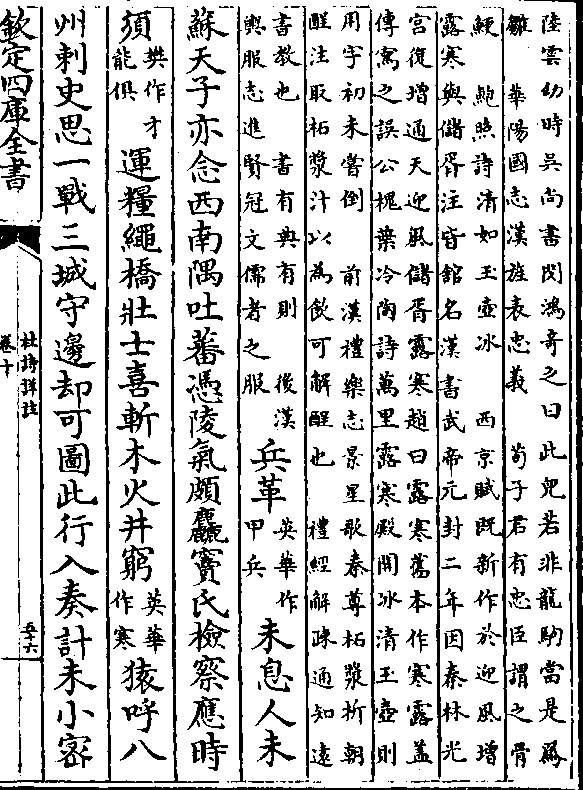 陸雲幼時吳尚書閔鴻奇之曰此兒若非龍駒當是鳳
雛 華陽國志漢旌表忠義 荀子君有忠臣謂之骨
鯁 鮑照詩清如玉壺冰 西京賦既新作於迎風增
露寒與儲胥注皆館名漢書武帝元封二年因秦林光
宮復增通天迎風儲胥露寒趙曰露寒舊本作寒露蓋
傳寫之誤公槐葉冷陶詩萬里露寒殿開冰清玉壺則
用字初未嘗倒 前漢禮樂志景星歌泰尊柘漿析朝
酲注取柘漿汁以為飲可解酲也 禮經解疏通知遠
書教也 書有典有則 後漢
輿服志進賢冠文儒者之服
兵革 英華作甲兵 未息人未
蘇天子亦念西南隅吐蕃憑陵氣頗麤竇氏檢察應時
須 樊作才能俱 運糧繩橋壯士喜斬木火井窮 英華作寒 猿呼八
州刺史思一戰三城守邊却可圖此行入奏計未小密
欽定四庫全書
杜詩詳註
卷十
五十六